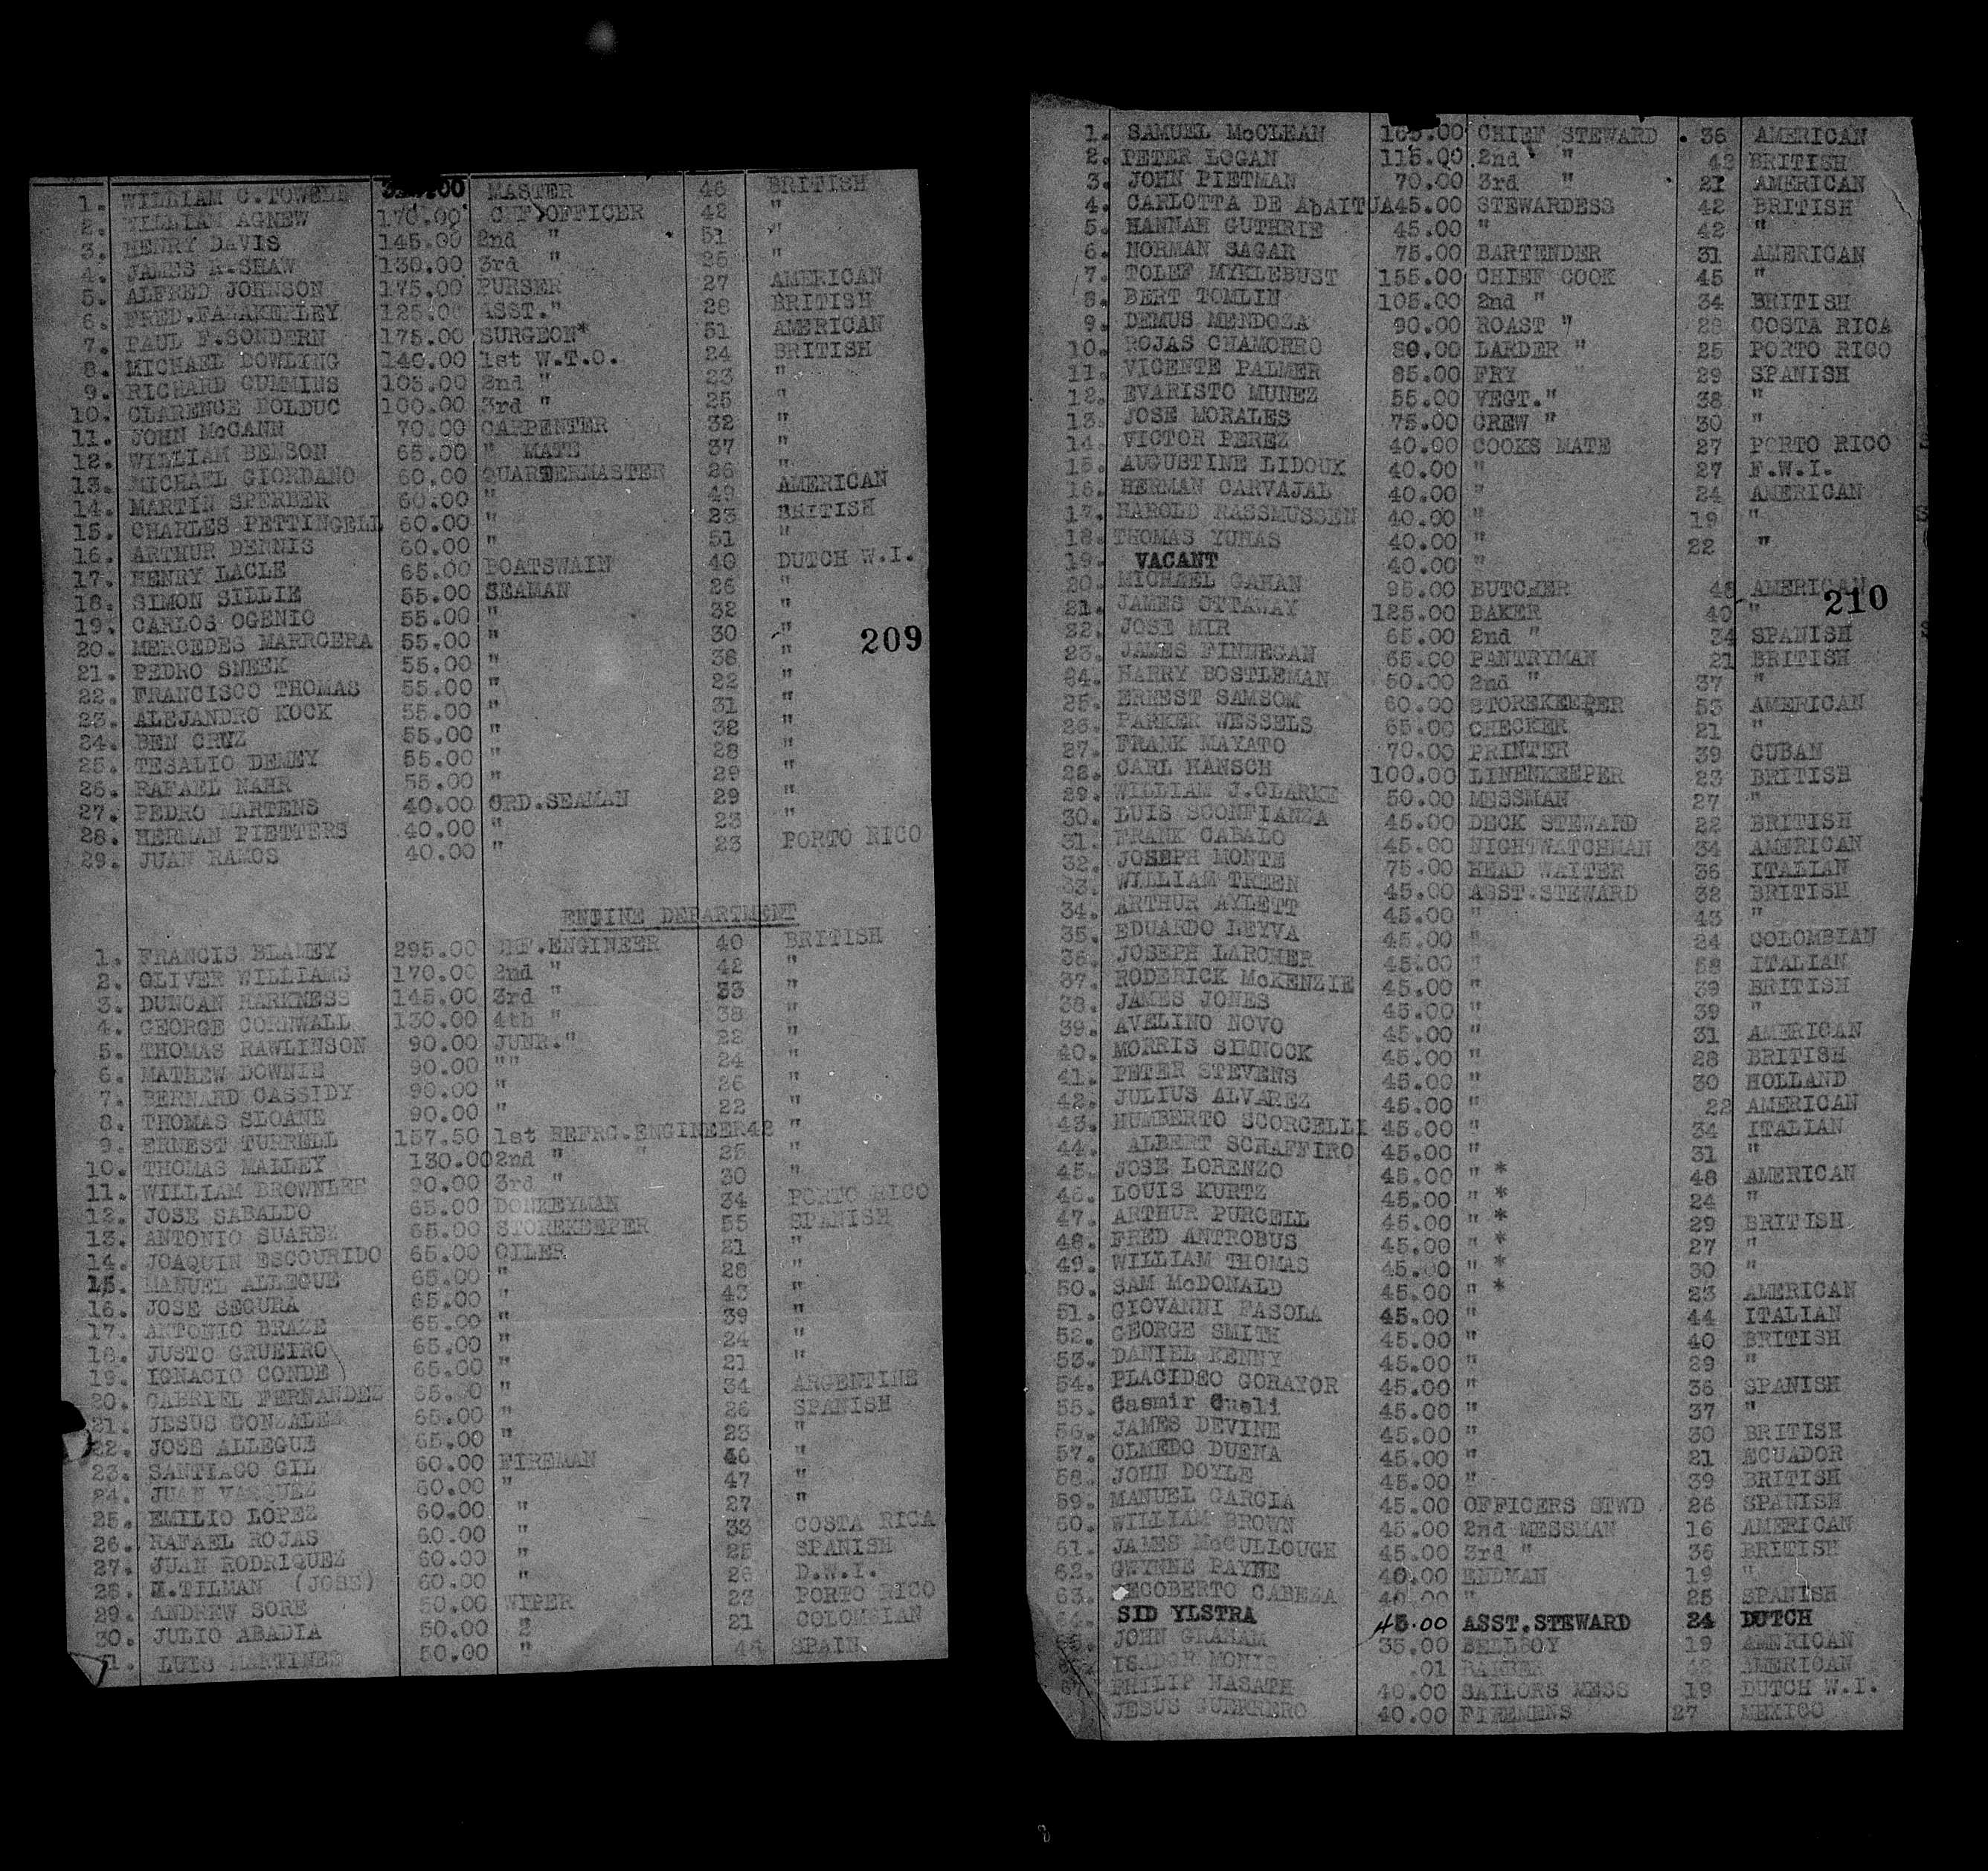 1. WILLIAM C.TOWELL .00 MASTER 46 BRITISH
2. WILLIAM AGNEW 170.00 CHF.OFFICER 42 "
3. HENRY DAVIS 145.00 2nd " 51 "
4. JAMES R.SHAW 130.00 3rd " 25 "
5. ALFRED JOHNSON 175.00 PURSER 27 AMERICAN
6. FRED.FAZAKERLEY 125.00 ASST." 28 BRITISH
7. PAUL F.SONDERN 175.00 SURGEON* 51 AMERICAN
8. MICHAEL DOWLING 140.00 1st W.T.O. 24 BRITISH
9. RICHARD CUMMINS 105.00 2nd " 23 "
10. CLARENCE BOLDUC 100.00 3rd " 25 "
11. JOHN McCANN 70.00 CARPENTER 32 "
12. WILLIAM BENSON 65.00 " MATE 37 "
13. MICHAEL GIORDANO 60.00 QUARTERMASTER 26 "
14. MARTIN SPERBER 60.00 " 49 AMERICAN
15. CHARLES PETTINGELL 60.00 " 23 BRITISH
16. ARTHUR DENNIS 60.00 " 51 "
17. HENRY LACLE 65.00 BOATSWAIN 40 DUTCH W.I.
18. SIMON SILLIE 55.00 SEAMAN 26 "
19. CARLOS OGENIO 55.00 " 32 "
20. MERCEDES MARRCERA 55.00 " 30 "
209
21. PEDRO SNEEK 55.00 " 36 "
22. FRANCISCO THOMAS 55.00 " 22 "
23. ALEJANDRO KOCK 55.00 " 31 "
24. BEN CRUZ 55.00 " 32 "
25. TESALIO DEMEY 55.00 " 28 "
26. RAFAEL NAHR 55.00 " 29 "
27. PEDRO MARTENS 40.00 ORD.SEAMAN 29 "
28. HERMAN PIETTERS 40.00 " 23 "
29. JUAN RAMOS 40.00 " 23 PORTO RICO
ENGINE DEPARTMENT
1. FRANCIS BLAMEY 295.00 CHF.ENGINEER 40 BRITISH
2. OLIVER WILLIAMS 170.00 2nd " 42 "
3. DUNCAN HARKNESS 145.00 3rd " 33 "
4. GEORGE CORNWALL 130.00 4th " 38 "
5. THOMAS RAWLINSON 90.00 JUNR." 22 "
6. MATHEW DOWNIE 90.00 "" 24 "
7. BERNARD CASSIDY 90.00 " 26 "
8. THOMAS SLOANE 90.00 " 22 "
9. ERNEST TURRELL 157.50 1st REFRG.ENGINEER 42 "
10. THOMAS MALLEY 130.00 2nd " " 25 "
11. WILLIAM BROWNLEE 90.00 3rd " 30 "
12. JOSE SABALDO 65.00 DONKEYMAN 34 PORTO RICO
13. ANTONIO SUAREZ 65.00 STOREKEEPER 55 SPANISH
14. JOAQUIN ESCOURIDO 65.00 OILER 21 "
15. MANUEL ALLEGUE 65.00 " 28 "
16. JOSE SEGURA 65.00 " 43 "
17. ANTONIO BRAZE 65.00 " 39 "
18. JUSTO GRUEIRO 65.00 " 24 "
19. IGNACIO CONDE 65.00 " 21 "
20. GABRIEL FERNANDEZ 65.00 " 34 ARGENTINE
21. JESUS GONZALEZ 65.00 " 26 SPANISH
22. JOSE ALLEGUE 65.00 " 23 "
23. SANTIAGO GIL 60.00 FIREMAN 46 "
24. JUAN VASQUEZ 60.00 " 47 "
25. EMILIO LOPEZ 60.00 " 27 "
26. RAFAEL ROJAS 60.00 " 33 COSTA RICA
27. JUAN RODRIQUEZ 60.00 " 25 SPANISH
28. M.TILMAN (JOSE) 60.00 " 26 D.W.I.
29. ANDREW SORE 50.00 WIPER 23 PORTO RICO
30. JULIO ABADIA 50.00 " 21 COLOMBIAN
31. LUIS MARTINEZ 50.00 " 44 SPAIN
1. SAMUEL McCLEAN 165.00 CHIEF STEWARD 36 AMERICAN
2. PETER LOGAN 115.00 2nd " 42 BRITISH
3. JOHN PIETMAN 70.00 3rd " 21 AMERICAN
4. CARLOTTA DE AbAITUA 45.00 STEWARDESS 42 BRITISH
5. HANNAH GUTHRIE 45.00 " 42 "
6. NORMAN SAGAR 75.00 BARTENDER 31 AMERICAN
7. TOLEF MYKLEBUST 155.00 CHIEF COOK 45 "
8. BERT TOMLIN 105.00 2nd " 34 BRITISH
9. DEMUS MENDOZA 90.00 ROAST " 28 COSTA RICA
10. ROJAS CHAMORRO 80.00 LARDER " 25 PORTO RICO
11. VICENTE PALMER 85.00 FRY " 29 SPANISH
12. EVARISTO MUNEZ 55.00 VEGT." 38 "
13. JOSE MORALES 75.00 CREW " 30 "
14. VICTOR PEREZ 40.00 COOKS MATE 27 PORTO RICO
15. AUGUSTINE LIDOUX 40.00 " 27 F.W.I.
16. HERMAN CARVAJAL 40.00 " 24 AMERICAN
17. HAROLD RASSMUSSEN 40.00 " 19 "
18. THOMAS YUHAS 40.00 " 22 "
19. VACANT 40.00 "
20. MICHAEL GAHAN 95.00 BUTCHER 48 AMERICAN
210
21. JAMES OTTAWAY 125.00 BAKER 40 "
22. JOSE MIR 65.00 2nd " 34 SPANISH
23. JAMES FINNEGAN 65.00 PANTRYMAN 21 BRITISH
84. HARRY BOSTLEMAN 50.00 2nd " 37 "
25. ERNEST SAMSOM 60.00 STOREKEEPER 53 AMERICAN
26. PARKER WESSELS 65.00 CHECKER 21 "
27. FRANK MAYATO 70.00 PRINTER 39 CUBAN
28. CARL HANSCH 100.00 LINENKEEPER 23 BRITISH
29. WILLIAM J.CLARKE 50.00 MESSMAN 27 "
30. LUIS SCONFIANZA 45.00 DECK STEWARD 22 BRITISH
31. FRANK CABALO 45.00 NIGHTWATCHMAN 34 AMERICAN
32. JOSEPH MONTE 75.00 HEAD WAITER 36 ITALIAN
33. WILLIAM TREEN 45.00 ASST.STEWARD 32 BRITISH
34. ARTHUR AYLETT 45.00 " 43 "
35. EDUARDO LEYVA 45.00 " 24 COLOMBIAN
36. JOSEPH LARCHER 45.00 " 58 ITALIAN
37. RODERICK McKENZIE 45.00 " 39 BRITISH
38. JAMES JONES 45.00 " 39 "
39. AVELINO NOVO 45.00 " 31 AMERICAN
40. MORRIS SIMNOCK 45.00 " 28 BRITISH
41. PETER STEVENS 45.00 " 30 HOLLAND
42. JULIUS ALVAREZ 45.00 " 22 AMERICAN
43. HUMBERTO SCORCELLI 45.00 " 34 ITALIAN
44. ALBERT SCHAFFIRO 45.00 " 31 "
45. JOSE LORENZO 45.00 " * 48 AMERICAN
46. LOUIS KURTZ 45.00 " * 24 "
47. ARTHUR PURCELL 45.00 " * 29 BRITISH
48. FRED ANTROBUS 45.00 " * 27 "
49. WILLIAM THOMAS 45.00 " * 30 "
50. SAM McDONALD 45.00 " * 23 AMERICAN
51. GIOVANNI FASOLA 45.00 " 44 ITALIAN
52. GEORGE SMITH 45.00 " 40 BRITISH
53. DANIEL KENNY 45.00 " 29 "
54. PLACIDEO GORAYOR 45.00 " 36 SPANISH
55. Casmir Cueli 45.00 " 37 "
56. JAMES DEVINE 45.00 " 30 BRITISH
57. OLMEDO DUENA 45.00 " 21 ECUADOR
58. JOHN DOYLE 45.00 " 39 BRITISH
59. MANUEL GARCIA 45.00 OFFICERS STWD 26 SPANISH
60. WILLIAM BROWN 45.00 2nd MESSMAN 16 AMERICAN
61. JAMES McCULLOUGH 45.00 3rd " 36 BRITISH
62. GWYNNE PAYNE 40.00 ENDMAN 19 "
63. CABEZA 40.00 " 25 SPANISH
64. SID YLSTRA 45.00 ASST.STEWARD 24 DUTCH
JOHN GRAHAM 35.00 BELLBOY 19 AMERICAN
ISADOR MONIS .01 BARBER 42 AMERICAN
PHILIP NASATH 40.00 SAILORS MESS 19 DUTCH W.I.
JESUS GUERRERO 40.00 FIREMENS 27 MEXICO